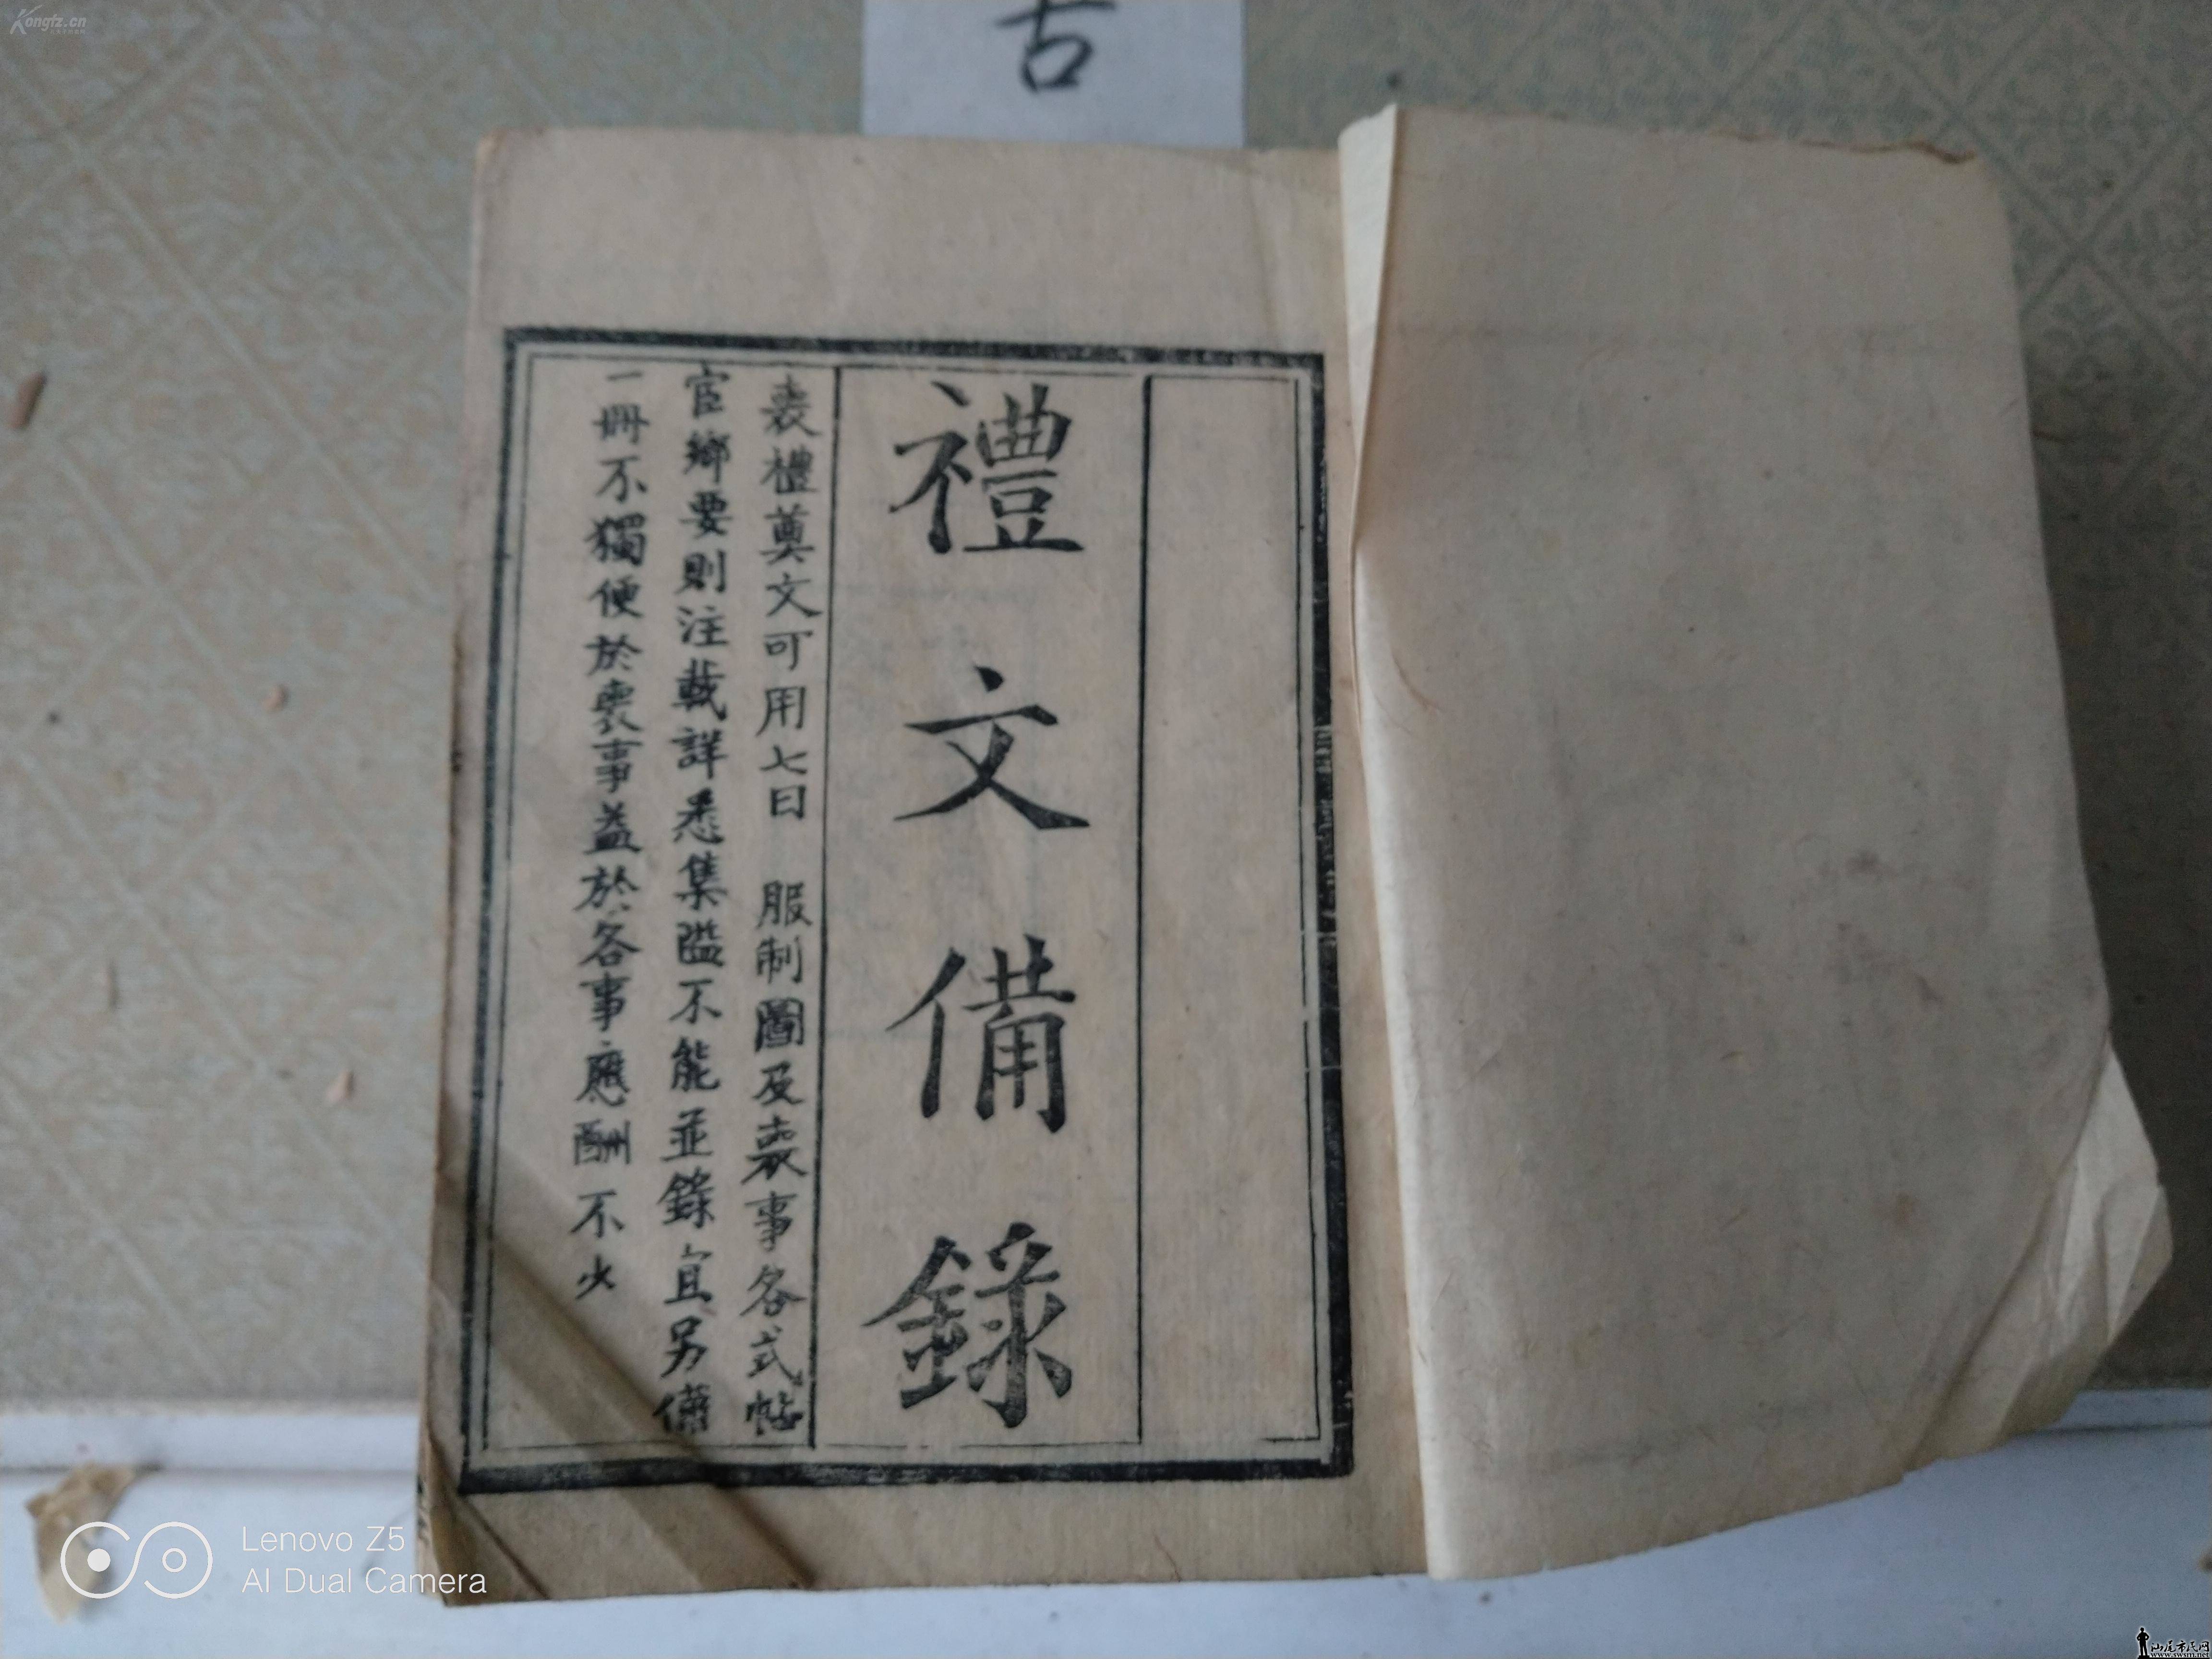 Kongfz.cn
古
禮文備錄
喪禮奠文可用七曰 服制圖及喪事各式帖
宦鄉要則注載詳悉集隘不能並錄宜另備
一冊不獨便於喪事益於各事應酬不少
Lenovo Z5
AI Dual Camera
汕尾市民网
www.swsm.net